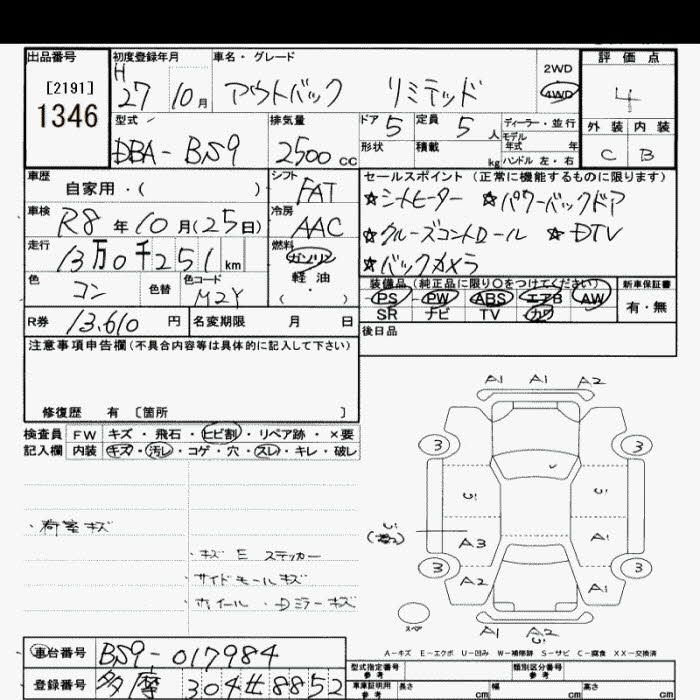 出品番号 初度登録年月 車名・グレード 評価点
[2191]
1346
H 27 10月 アウトバック リミテッド 2WD 4WD 4
型式 排気量 ドア 5 定員 5人 ディーラー・並行 外装 内装
モデル年式 年
DBA-BS9 2500cc 形状 積載 kg ハンドル 左・右 C B
車歴 シフト セールスポイント (正常に機能するものに限ります)
自家用・( ) FAT ☆シートヒーター ☆パワーバックドア
車検 R8年10月(25日) 冷房 AAC ☆クルーズコントロール ☆DTV
走行 13万0千251km 燃料 ガソリン ☆バックカメラ
軽油
・( )
色 コン 色替 色コード M2Y 装備品 (純正品に限り〇をつけてください) 新車保証書
PS PW ABS エアB AW 有・無
SR ナビ TV カワ
R券 13,610円 名変期限 月 日 後日品
注意事項申告欄 (不具合内容等は具体的に記入して下さい)
修復歴 有 〔箇所 〕
検査員 FW キズ・飛石・ヒビ割・リペア跡・×要
記入欄 内装 キズ・汚レ・コゲ・穴・スレ・キレ・破レ
A1 A1 A2
3 3
・荷室キズ
・キズ E ステッカー
・サイドモールキズ
・ホイール・Dミラーキズ
A3 A1
3 3
A2 A1
スペア
A1 A2
A-キズ E-エクボ U-凹み W-補修跡 S-サビ C-腐食 XX-交換済
車台番号 BS9-017984
登録番号 多摩 304 せ 8852
型式指定番号 参考 類別区分番号 参考
車庫証明用 参考 長さ cm 幅 cm 高さ cm